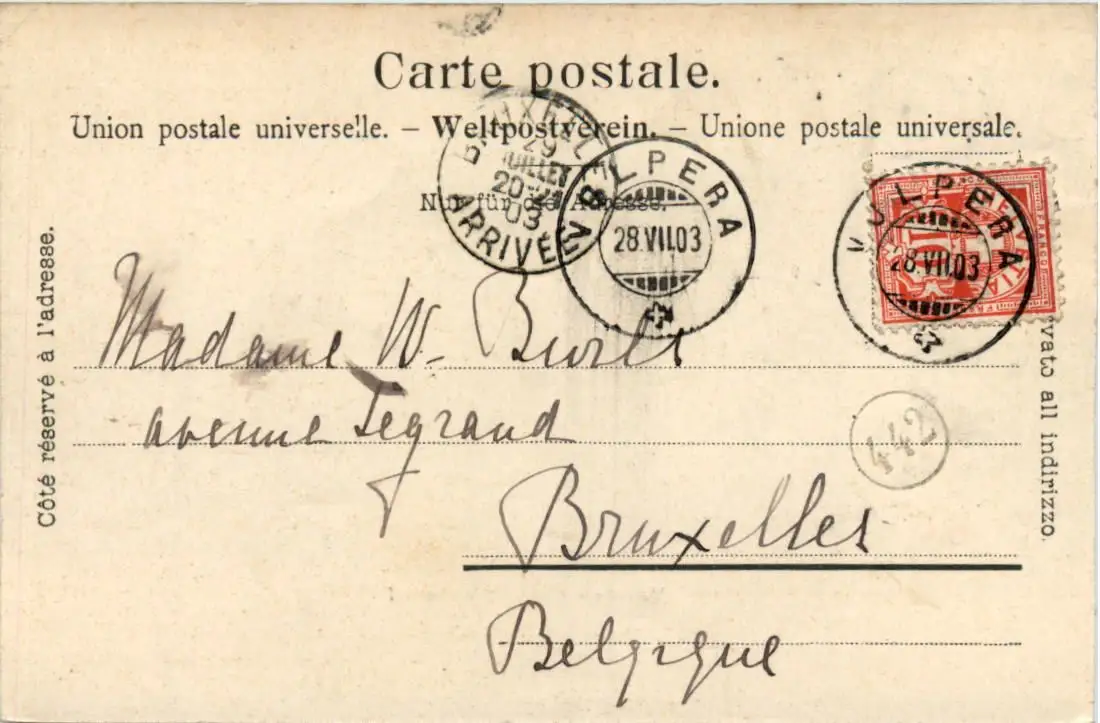 Carte postale.
Union postale universelle. – Weltpostverein. – Unione postale universale.
Nur für die Adresse.
Côté réservé à l'adresse.
BRUXELL
29
JUILLET
20
03
ARRIVÉE
VULPERA
28.VII.03
VULPERA
28.VII.03
10
Madame W.
avenue Legrand
Bruxelles
Belgique
442
vato all indirizzo.